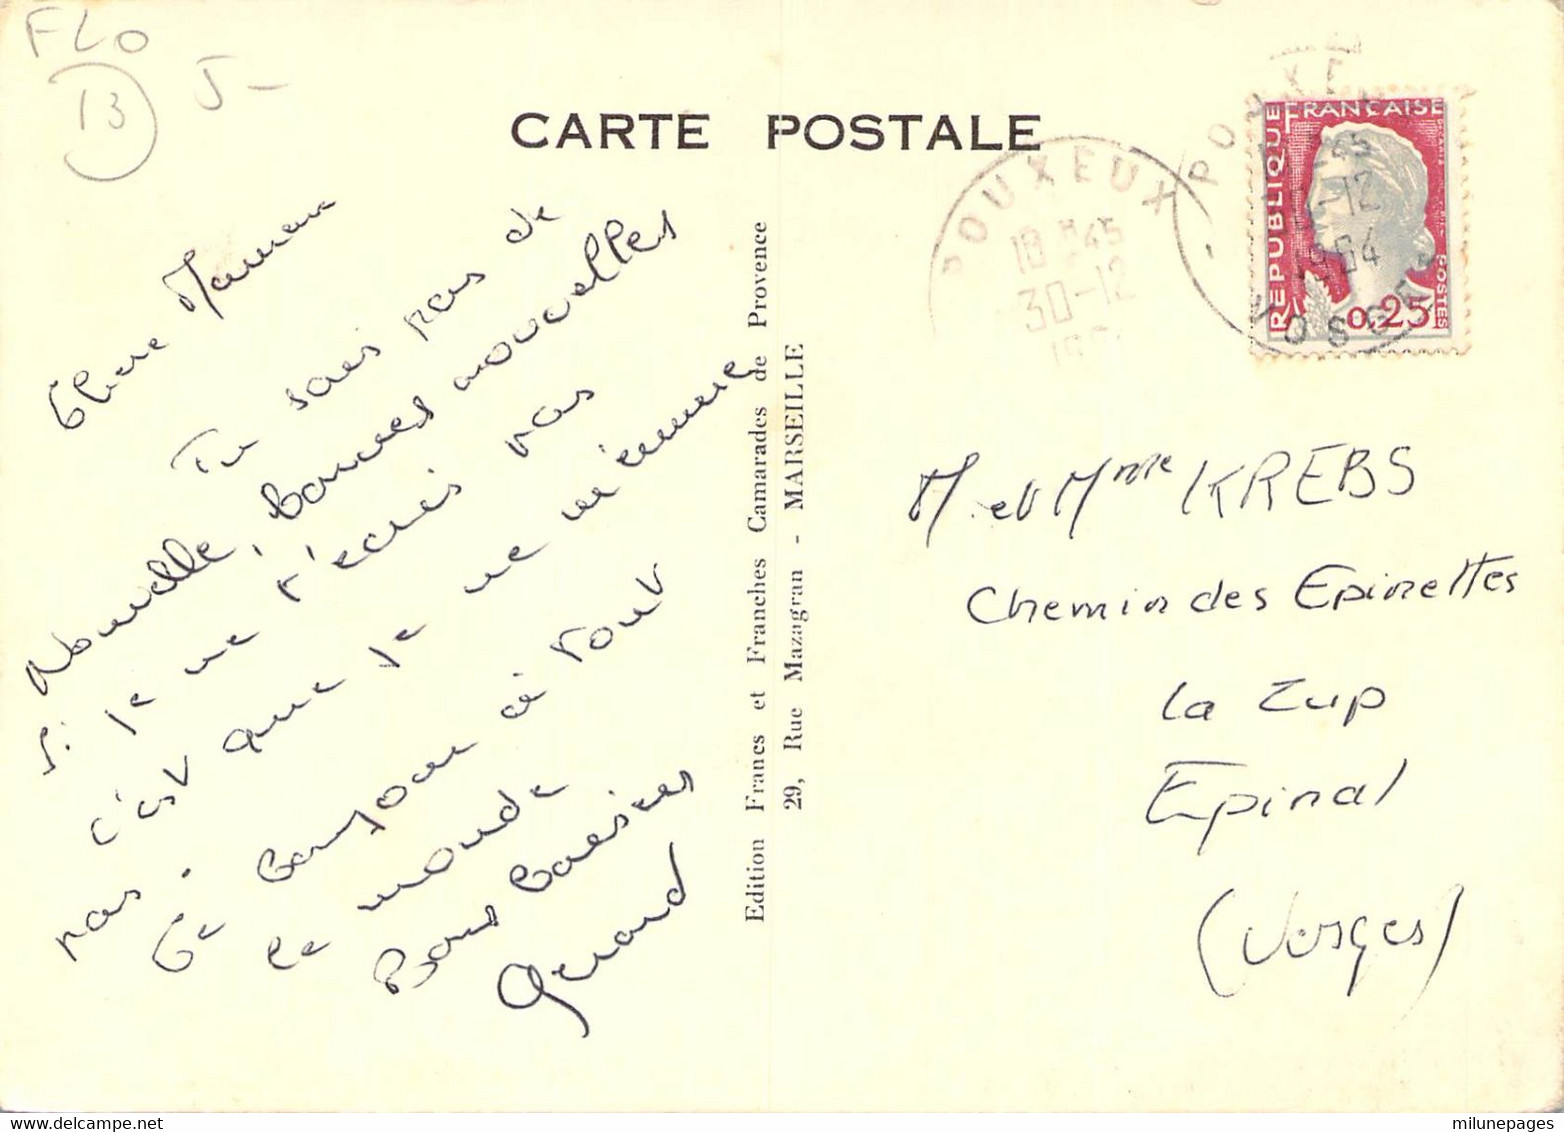 FLO
13
5-
CARTE POSTALE
Chere Maman
Tu sais pas de
nouvelle, bonnes nouvelles
si je ne t'ecris pas
c'est que je ne m'ennuie
pas.
Ce bonjour à tout
le monde
Bons baisers
Gerard
Edition Francs et Franches Camarades de Provence
29, Rue Mazagran - MARSEILLE
POUXEUX
18 H45
30-12
POUXEUX
45
-12
1964
VOSGES
REPUBLIQUE FRANÇAISE
POSTES
0,25
M. et Mme KREBS
Chemin des Epinettes
La Zup
Epinal
(Vosges)
milunepages